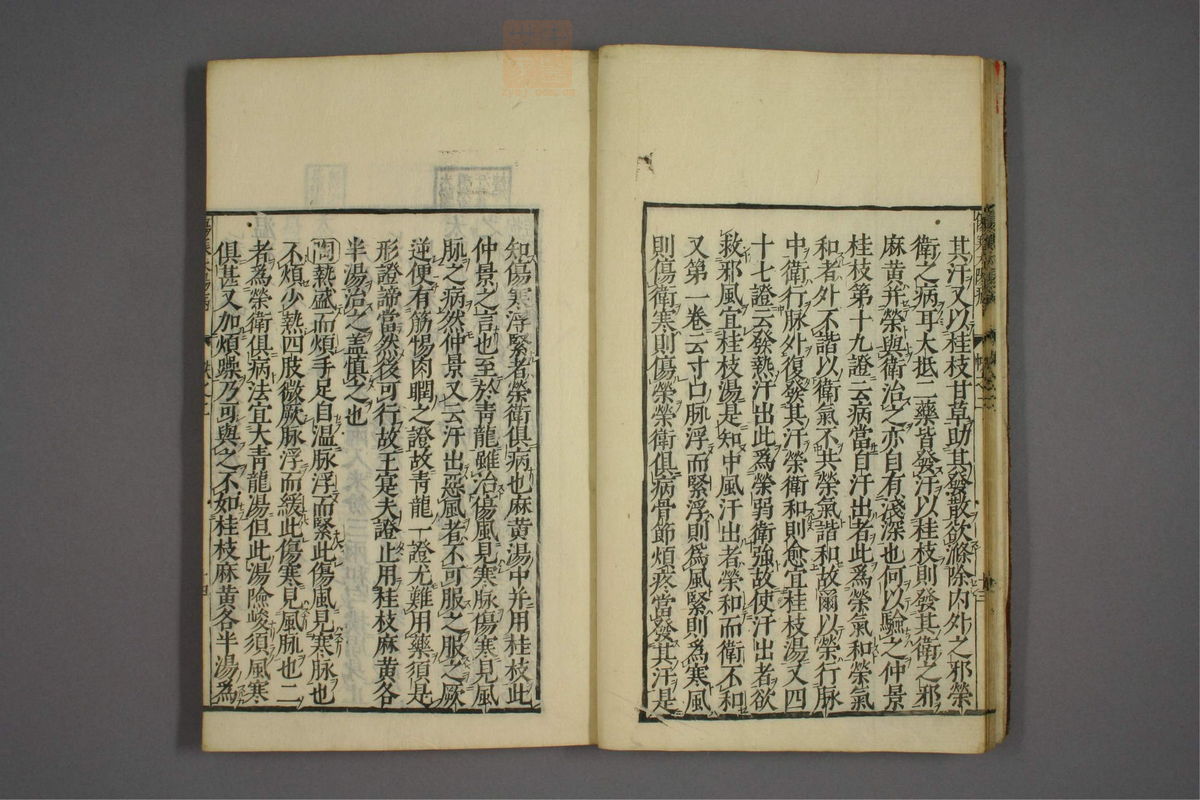 其汗又以桂枝甘草助其發散欲滌除内外之邪榮
衛之病耳大抵二藥皆發汗以桂枝則發其衛之邪
麻黄并榮與衛治之亦自有淺深也何以驗之仲景
桂枝第十九證云病當自汗出者此爲榮氣和榮氣
和者外不諧以衛氣不共榮氣諧和故爾以榮行脉
中衛行脉外復發其汗榮衛和則愈宜桂枝湯又四
十七證云發熱汗出此爲榮弱衛強故使汗出者欲
救邪風宜桂枝湯是知中風汗出者榮和而衛不和
又第一卷云寸口脉浮而緊浮則爲風緊則爲寒風
則傷衛寒則傷榮榮衛俱病骨節煩疼當發其汗是
知傷寒浮緊者榮衛俱病也麻黄湯中并用桂枝此
仲景之言也至於青龍雖治傷風見寒脉傷寒見風
脉之病然仲景又云汗出惡風者不可服之服之厥
逆便有筋惕肉瞤之證故青龍一證尤難用藥須是
形證諦當然後可行故王寔夫證止用桂枝麻黄各
半湯治之盖慎之也
問熱盛而煩手足自溫脉浮而緊此傷風見寒脉也
不煩少熱四肢微厥脉浮而緩此傷寒見風脉也二
者爲榮衛俱病法宜大青龍湯但此湯險峻須風寒
俱甚又加煩躁乃可與之不如桂枝麻黄各半湯爲